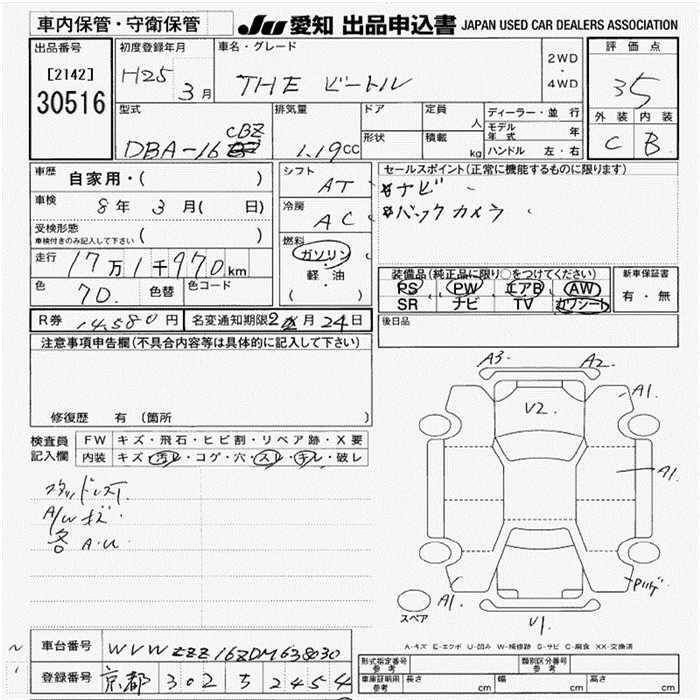 車内保管・守衛保管
JU 愛知 出品申込書 JAPAN USED CAR DEALERS ASSOCIATION
出品番号
[2142]
30516
初度登録年月
H25 3月
車名・グレード
THE ビートル
2WD
・
4WD
評価点
35
外装 内装
C B
型式
DBA-16
CBZ
排気量
1.19CC
ドア
形状
定員
人
積載
kg
ディーラー・並行
モデル年式 年
ハンドル 左・右
車歴 自家用・( )
車検 8年 3月( 日)
受検形態
車検付きのみ記入して下さい ( )
走行 17万1千970km
色 7D. 色替 色コード
シフト AT
冷房 AC
燃料
ガソリン
・
軽・油
( )
セールスポイント(正常に機能するものに限ります)
*ナビ
*バックカメラ
装備品(純正品に限り○をつけてください)
PS PW エアB AW
SR ナビ TV カワシート
新車保証書
有・無
R券 14,580円 名変通知期限 2月24日
後日品
注意事項申告欄(不具合内容等は具体的に記入して下さい)
修復歴 有 (箇所 )
検査員記入欄
FW キズ・飛石・ヒビ割・リペア跡・X要
内装 キズ・汚レ・コゲ・穴・スレ・キレ・破レ
A/Wキズ.
各 A.U
A3 A2
V2
A1.
A1.
A1
V1
スペア
A-キズ E-エクボ U-凹み W-補修跡 S-サビ C-腐食 XX-交換済
車台番号 WVWZZZ16ZDM638030
登録番号 京都 302 ち 2454
形式指定番号
参考
類別区分番号
参考
車庫証明用
参考
長さ cm 幅 cm 高さ cm